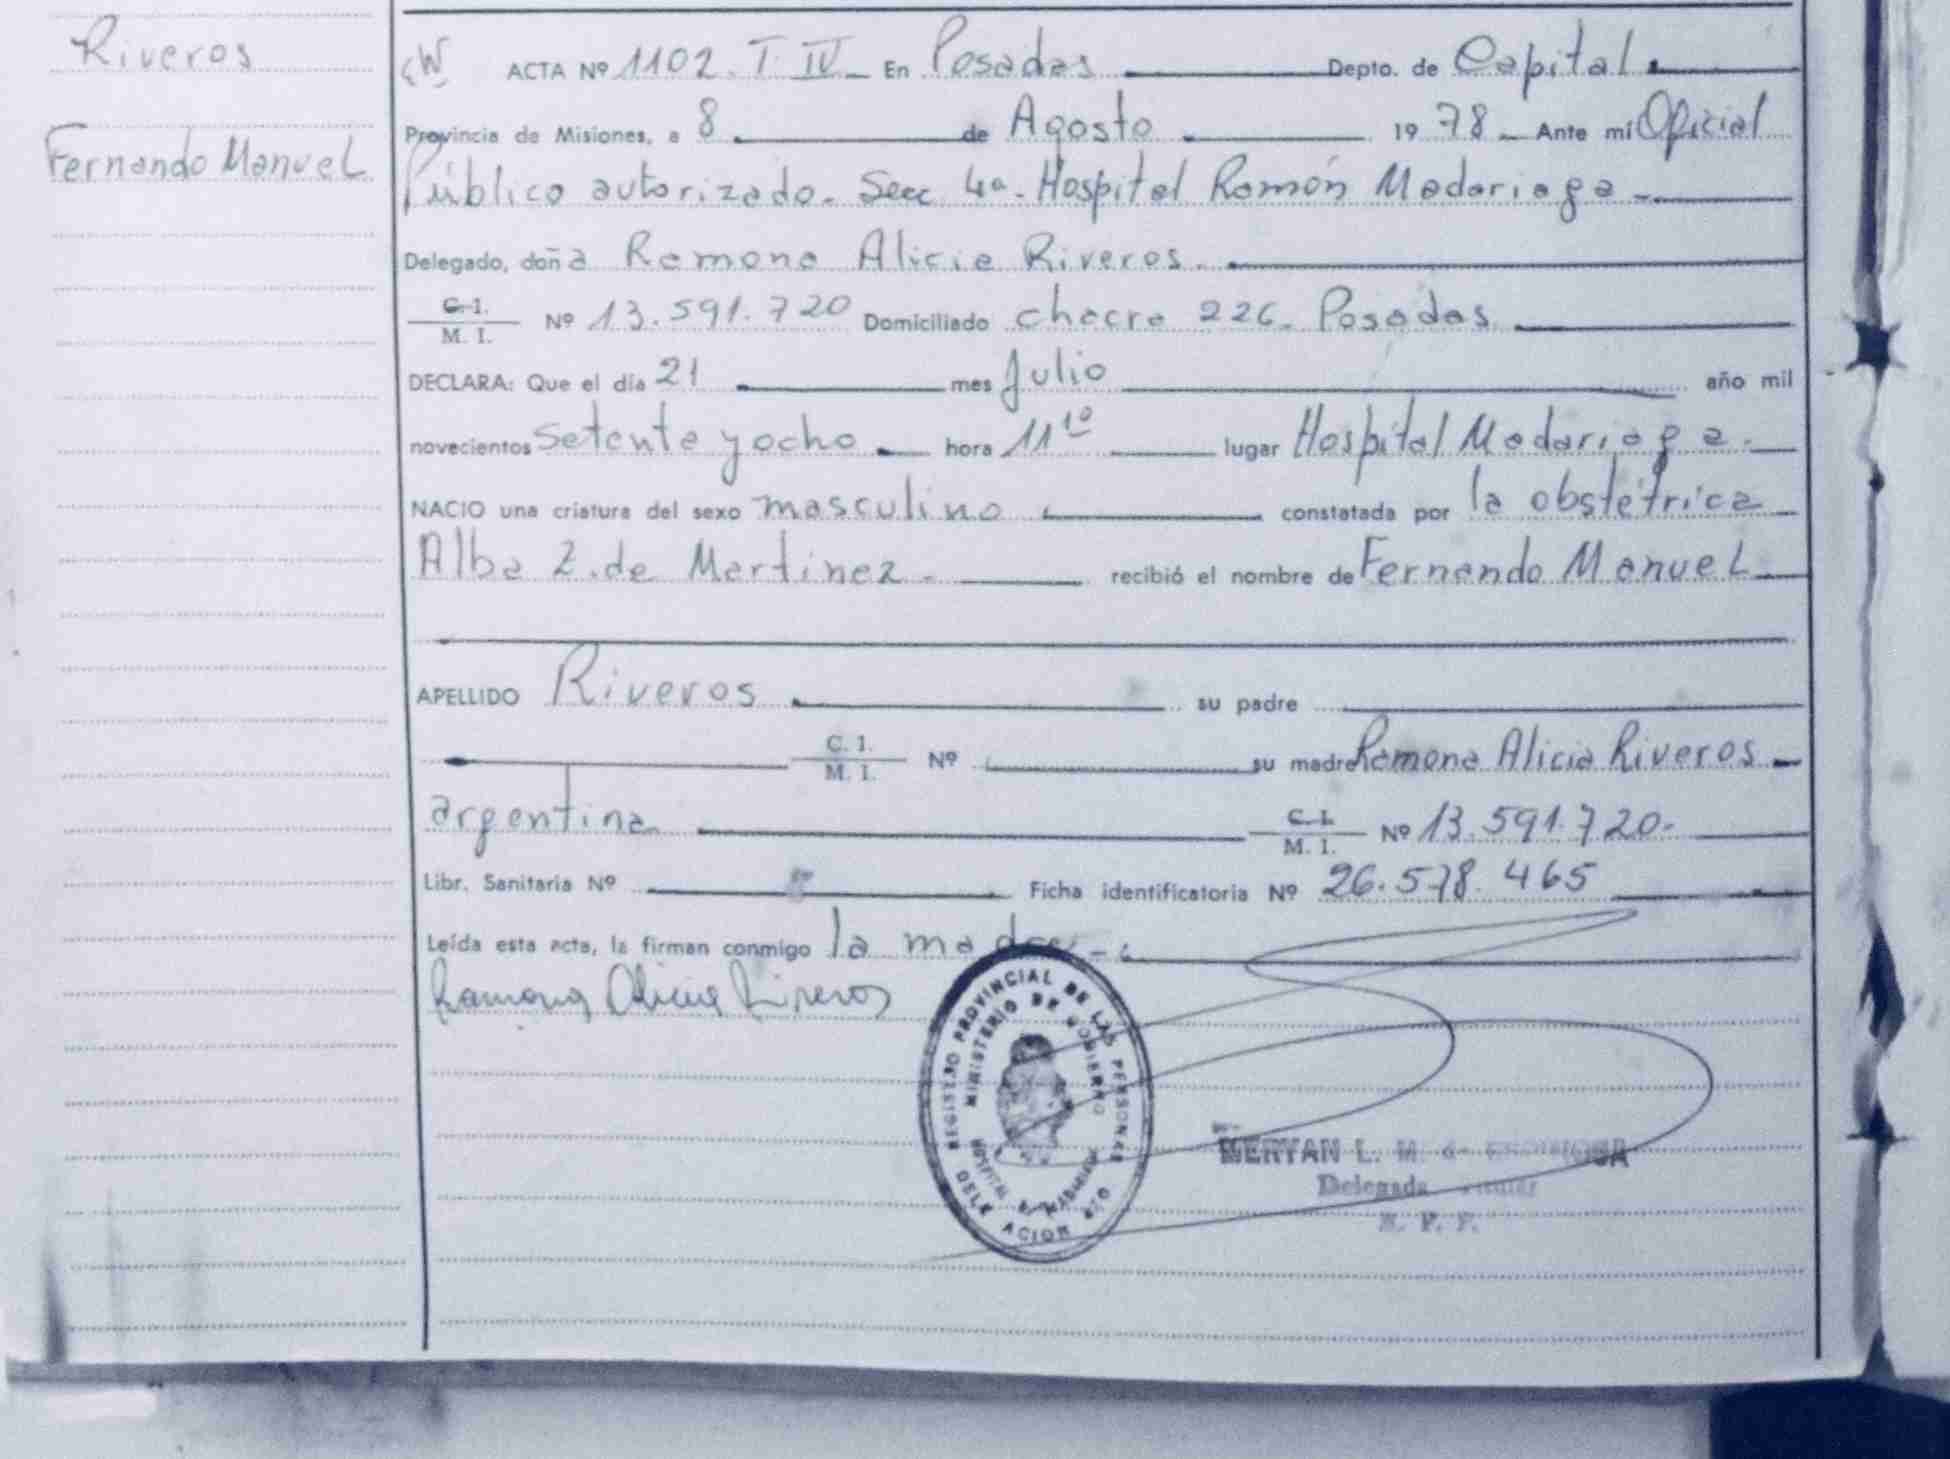 Riveros
Fernando Manuel
ACTA Nº 1102. T IV En Posadas Depto. de Capital.
Provincia de Misiones, a 8 de Agosto 19 78 Ante mí Oficial
Público autorizado. Secc 4a. Hospital Ramón Madariaga
Delegado, doña Ramona Alicia Riveros.
C. I. / M. I. Nº 13.591.720 Domiciliado chacra 226. Posadas
DECLARA: Que el día 21 mes Julio año mil
novecientos setenta y ocho hora 11 10 lugar Hospital Madariaga.
NACIO una criatura del sexo masculino constatada por la obstétrica
Alba Z. de Martinez recibió el nombre de Fernando Manuel
APELLIDO Riveros su padre
C. I. / M. I. Nº su madre Ramona Alicia Riveros
argentina C. I. / M. I. Nº 13.591.720.
Libr. Sanitaria Nº Ficha identificatoria Nº 26.578.465
Leída esta acta, la firman conmigo la madre
Ramona Alicia Riveros
REGISTRO PROVINCIAL DE LAS PERSONAS
MINISTERIO DE GOBIERNO
HOSPITAL R. MADARIAGA
MERYAN L. M. de
Delegada Titular